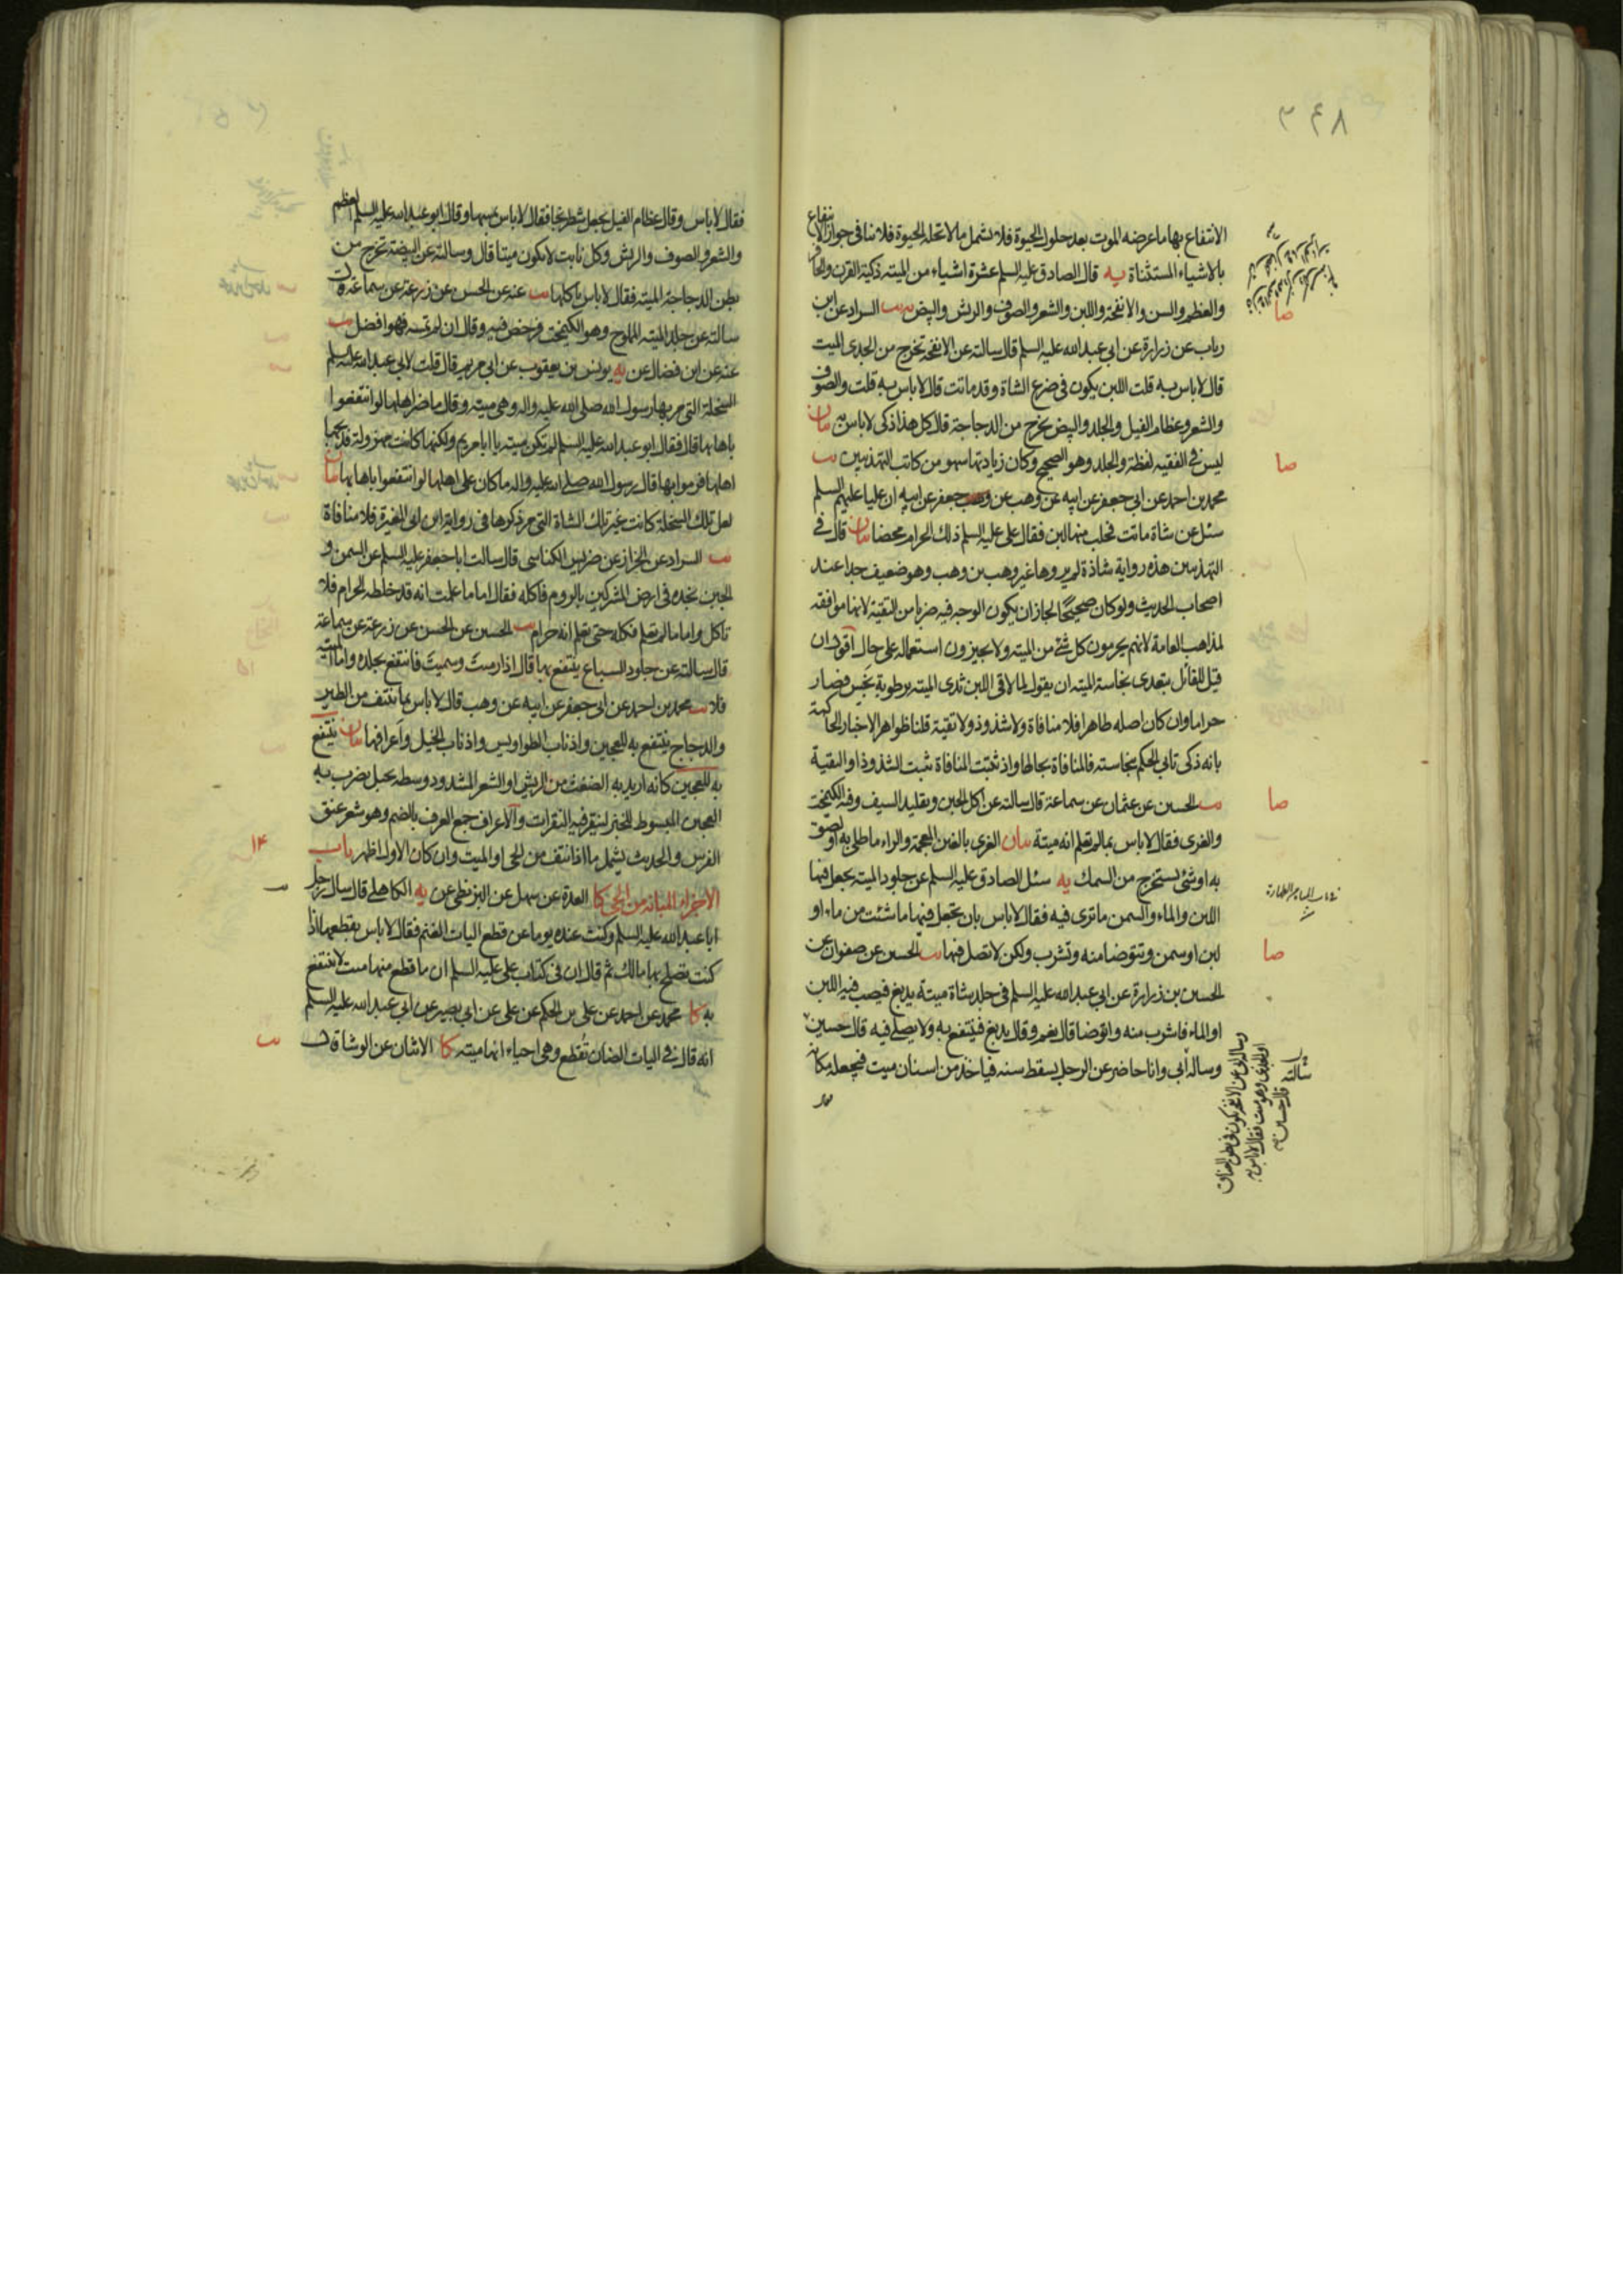 ۳۴۸
الانتفاع بها ما عرضه الموت بعد حلول الحيوة فلا يشمل ما لا تحله الحيوة فلا ينافي جواز الانتفاع
بالاشياء المستثناة يه قال الصادق عليه السلم عشرة اشياء من الميته ذكية القرن والحافر
والعظم والسن والانفحة واللبن والشعر والصوف والريش والبيض يب السراد عن ابن
رباب عن زرارة عن ابي عبد الله عليه السلم قال سالته عن الانفحة تخرج من الجدى الميت
قال لا باس به قلت اللبن يكون في ضرع الشاة وقد ماتت قال لا باس به قلت والصوف
والشعر وعظام الفيل والجلد والبيض يخرج من الدجاجة قال كل هذا ذكى لا باس به بيان
ليس في الفقيه لفظة والجلد وهو الصحيح وكان زيادتها سهو من كاتب التهذيبين يب
محمد بن احمد عن ابي جعفر عن ابيه عن وهب عن جعفر عن ابيه ان عليا عليهم السلم
سئل عن شاة ماتت فحلب منها لبن فقال على عليه السلم ذلك الحرام محضا بيان قال في
التهذيبين هذه رواية شاذة لم يروها غير وهب بن وهب وهو ضعيف جدا عند
اصحاب الحديث ولو كان صحيحا لجاز ان يكون الوجه فيه ضربا من التقية لانها موافقه
لمذاهب العامة لانهم يحرمون كل شئ من الميته ولا يجيزون استعماله على حال اقول ان
قيل للقائل بتعدى نجاسة الميته ان يقول لما لاقى اللبن ثدى الميته برطوبة نجس فصار
حراما وان كان اصله طاهرا فلا منافاة ولا شذوذ ولا تقية قلنا ظواهر الاخبار الحاكمة
بانه ذكى تابى الحكم بنجاسته فالمنافاة بحالها واذ ثبتت المنافاة ثبت الشذوذ او التقية
يب الحسين عن عثمان عن سماعة قال سالته عن اكل الجبن وتقليد السيف وفيه الكيمخت
والغرى فقال لا باس بما لم تعلم انه ميتة بيان الغرى بالغين المعجمة والراء ما طلى به او لصق
به او شئ يستخرج من السمك يه سئل الصادق عليه السلم عن جلود الميته يجعل فيها
اللبن والماء والسمن ما ترى فيه فقال لا باس بان تجعل فيها ما شئت من ماء او
لبن او سمن وتتوضا منه وتشرب ولكن لا تصل فيها يب الحسين عن صفوان عن
الحسين بن زرارة عن ابي عبد الله عليه السلم في جلد شاة ميتة يدبغ فيصب فيه اللبن
او الماء فاشرب منه واتوضا قال نعم وقال يدبغ فينتفع به ولا يصلى فيه قال حسين
وساله ابي وانا حاضر عن الرجل يسقط سنه فياخذ من اسنان ميت فيجعله مكانه
صا
صا
صا
صا
وساله ابي عن الانفحة يكون في بطن العناق
او الجدى وهو ميت فقال لا باس به
قال حسين
فقال لا باس وقال عظام الفيل يجعل شطرنجا فقال لا باس بمسها وقال ابو عبد الله عليه السلم العظم
والشعر والصوف والريش وكل نابت لا يكون ميتا قال وسالته عن البيضة تخرج من
بطن الدجاجة الميته فقال لا باس باكلها يب عنه عن الحسن عن زرعة عن سماعة قال
سالته عن جلد الميته المملوح وهو الكيمخت فرخص فيه وقال ان لم تمسه فهو افضل يب
عنه عن ابن فضال عن يه يونس بن يعقوب عن ابي مريم قال قلت لابي عبد الله عليه السلم
السخلة التي مر بها رسول الله صلى الله عليه واله وهى ميته وقال ما ضر اهلها لو انتفعوا
باهابها قال فقال ابو عبد الله عليه السلم لم تكن ميته يا ابا مريم ولكنها كانت مهزولة فذبحها
اهلها فرموا بها فقال رسول الله صلى الله عليه واله ما كان على اهلها لو انتفعوا باهابها بيان
لعل تلك السخلة كانت غير تلك الشاة التي مر ذكرها في رواية ابن ابي المغيرة فلا منافاة
يب السراد عن الخزاز عن ضريس الكناسى قال سالت ابا جعفر عليه السلم عن السمن و
الجبن نجده في ارض المشركين بالروم فاكله فقال اما ما علمت انه قد خلطه الحرام فلا
تاكل واما ما لم تعلم فكله حتى تعلم انه حرام يب الحسين عن الحسن عن زرعة عن سماعة
قال سالته عن جلود السباع ينتفع بها قال اذا رميت وسميت فانتفع بجلده واما الميته
فلا يب محمد بن احمد عن ابي جعفر عن ابيه عن وهب قال لا باس بما ينتف من الطير
والدجاج ينتفع به للعجين واذناب الطواويس واذناب الخيل واعرافها بيان ينتفع
به للعجين كانه اريد به الضغث من الريش او الشعر المشدود وسطه بحبل يضرب به
العجين المبسوط للخبز لينقر فيه النقرات والاعراف جمع العرف بالضم وهو شعر عنق
الفرس والحديث يشمل ما اذا نتف من الحى او الميت وان كان الاول اظهر باب
الاجزاء المبانة من الحى كا العدة عن سهل عن البزنطى عن يه الكاهلى قال سال رجل
ابا عبد الله عليه السلم وكنت عنده يوما عن قطع اليات الغنم فقال لا باس بقطعها اذا
كنت تصلح بها مالك ثم قال ان في كتاب على عليه السلم ان ما قطع منها ميت لا ينتفع
به كا محمد عن احمد عن على بن الحكم عن على عن ابي بصير عن ابي عبد الله عليه السلم
انه قال في اليات الضان تقطع وهى احياء انها ميته كا الاثنان عن الوشا قال
۱۴